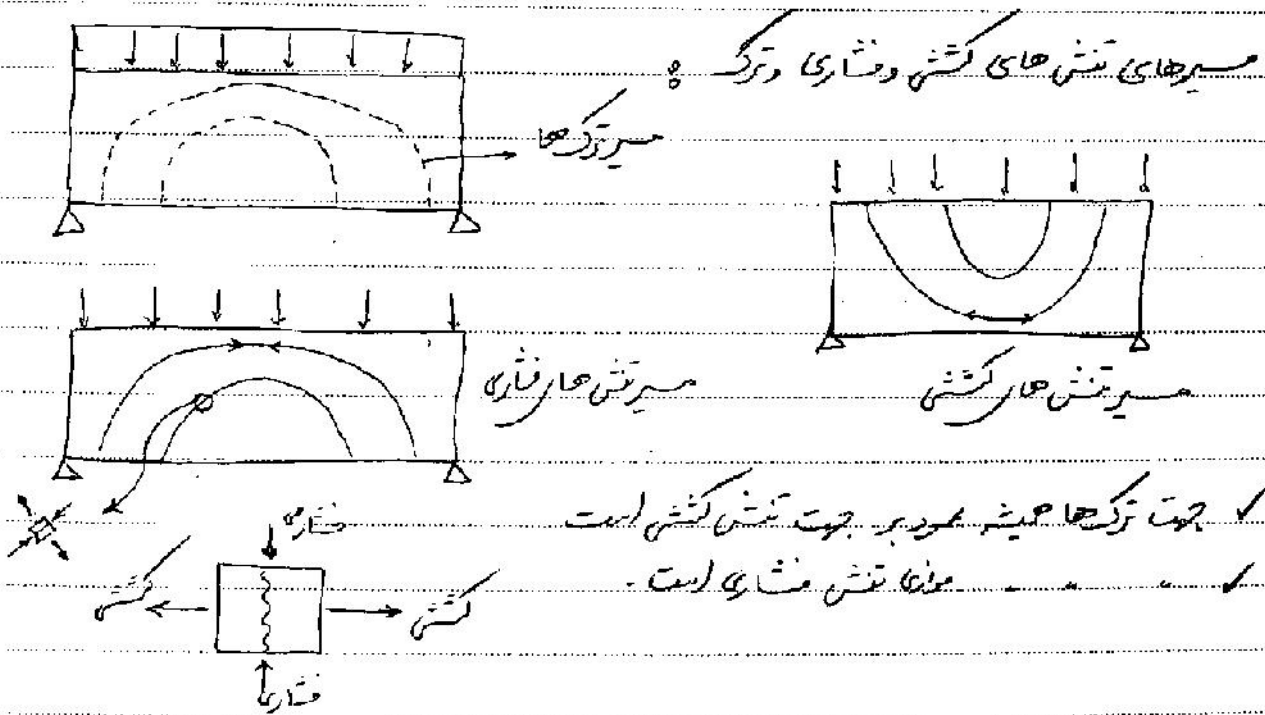 مسیرهای تنش های کششی و فشاری و ترک :
مسیر ترک ها
مسیر تنش های فشاری
مسیر تنش های کششی
✓ جهت ترک ها همیشه عمود بر جهت تنش کششی است
✓ " " " موازی تنش فشاری است.
فشاری
کششی
کششی
فشاری